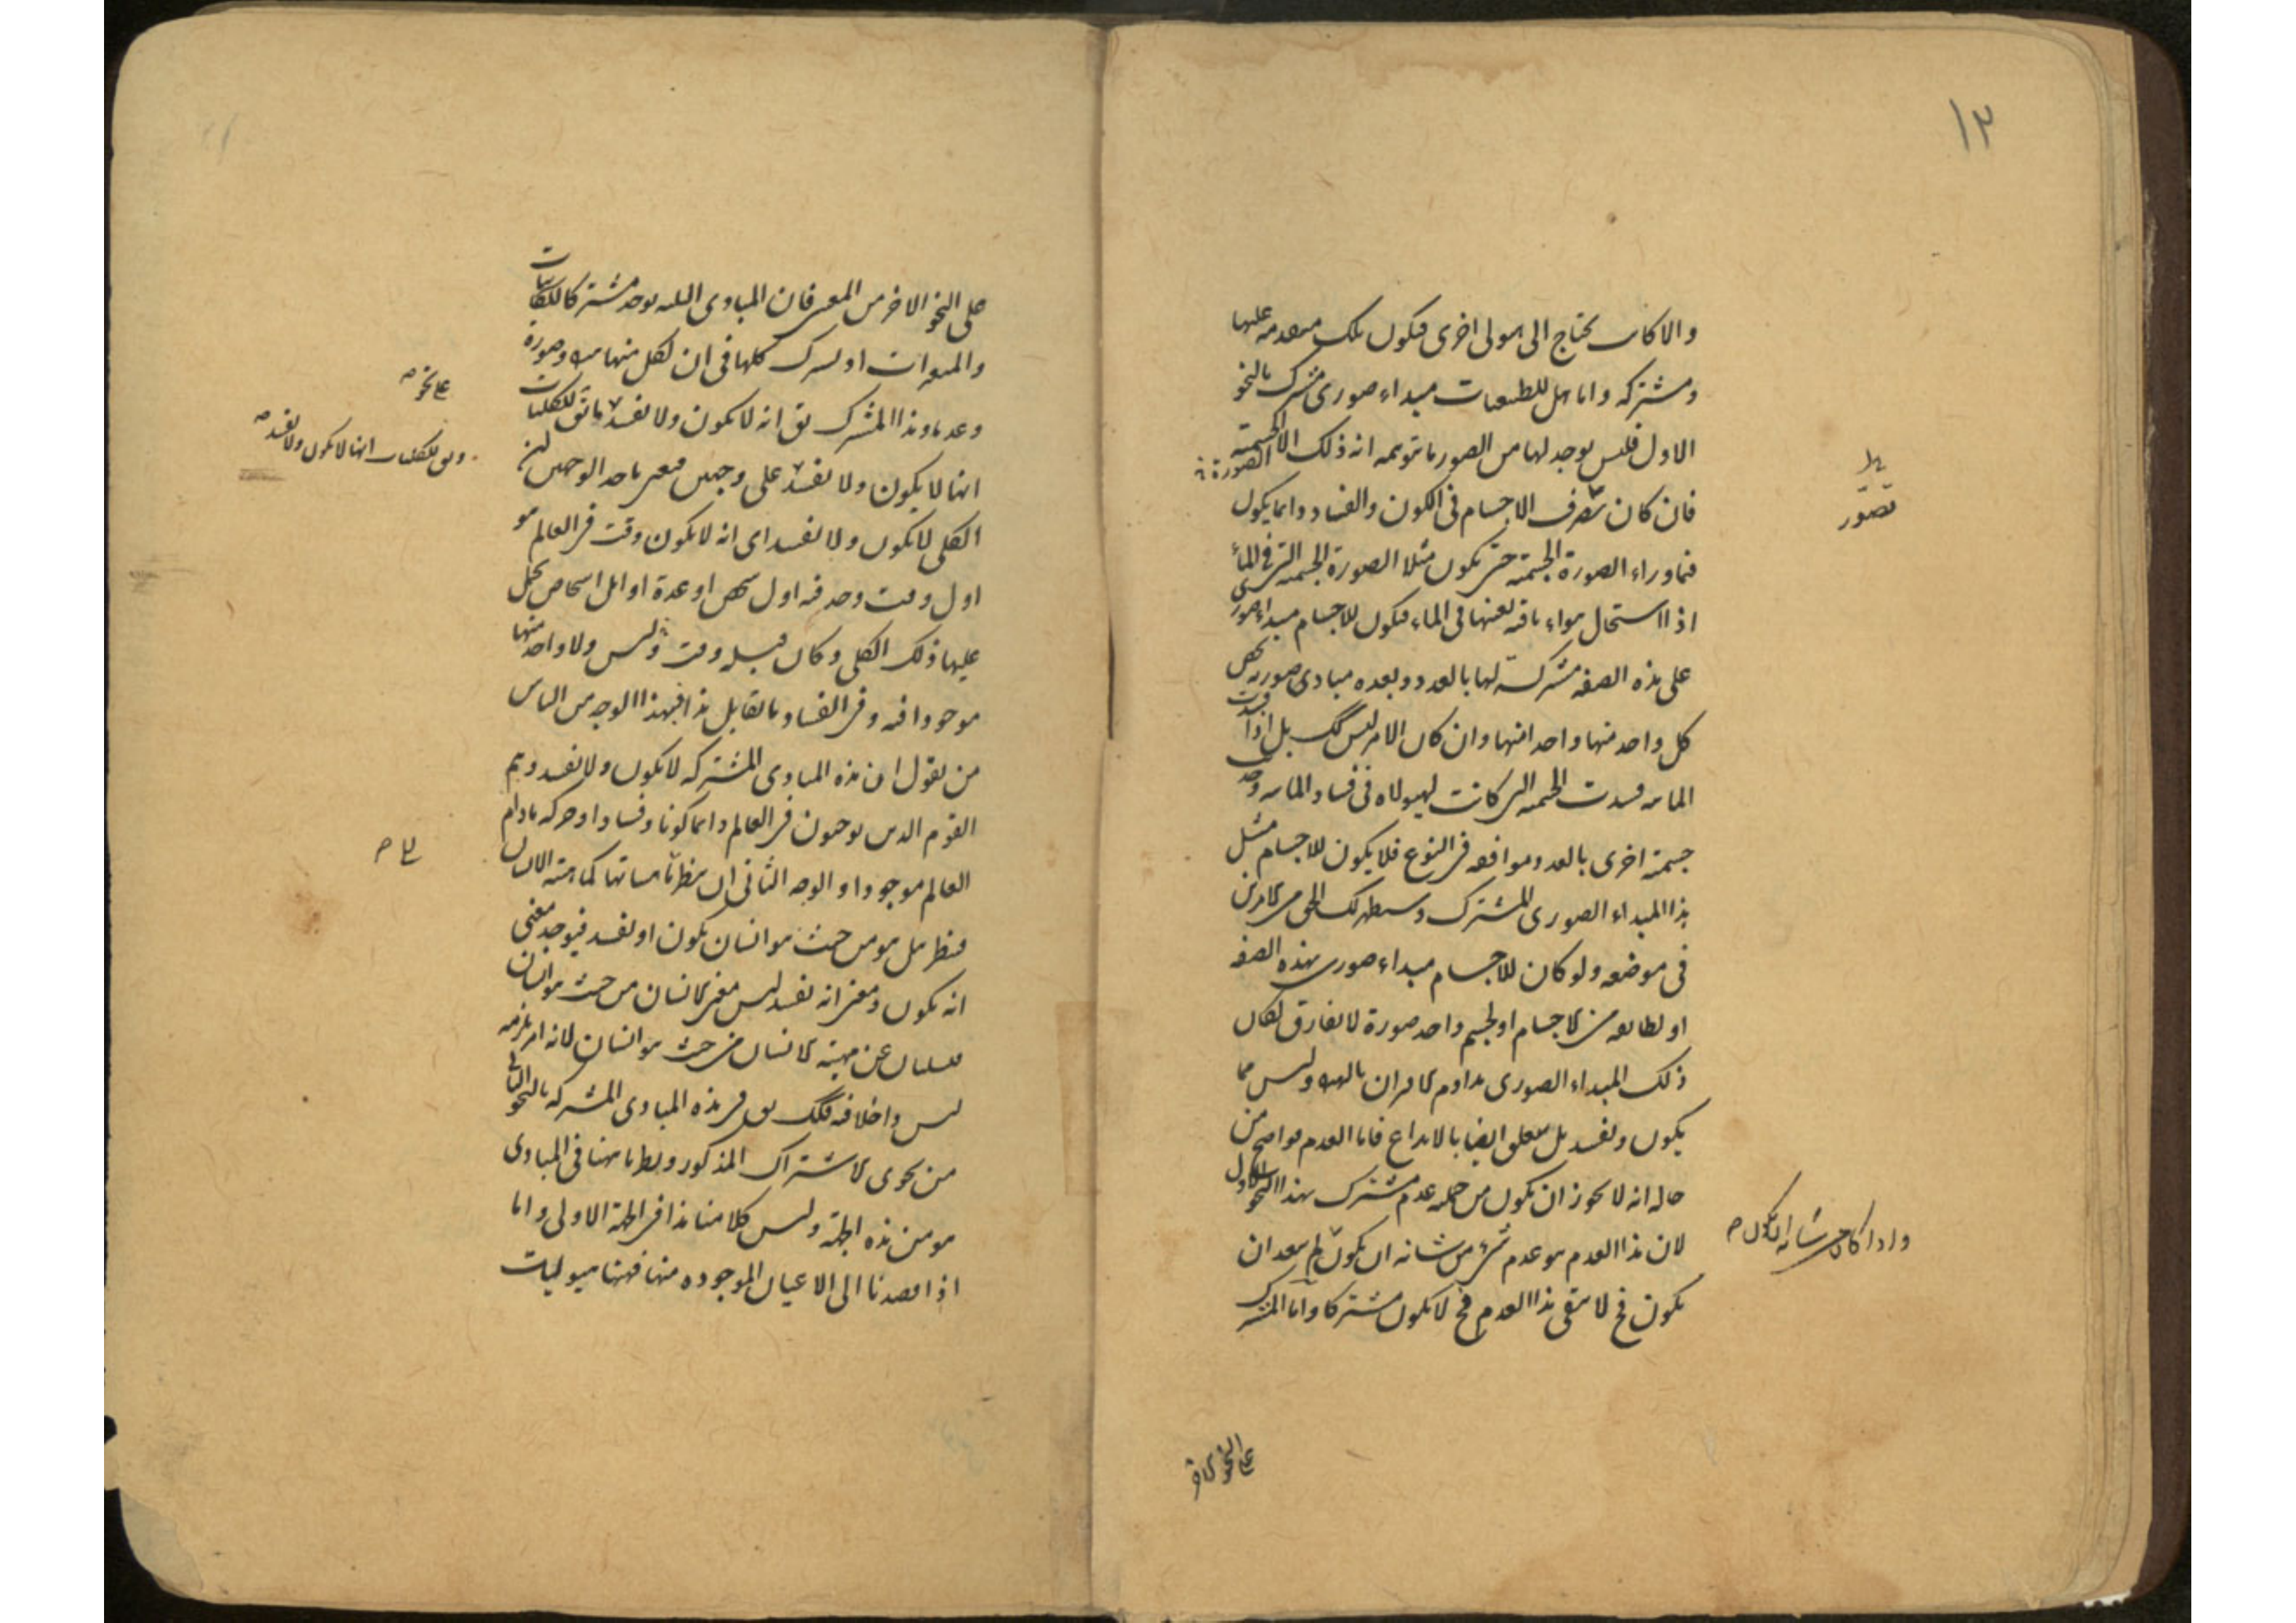 ١٣
والا كانت تحتاج الى هيولى اخرى فيكون تلك متقدمه عليها
ومشتركه واما هل للطبيعيات مبداء صورى مشترك بالنحو
الاول فليس يوجد لها من الصور ما نتوهمه انه ذلك الا الجسمية
الصورة
فان كان تصرف الاجسام فى الكون والفساد دائما يكون
يدل
تصور
فيما وراء الصورة الجسمية حتى تكون مثلا الصورة الجسمية التى فى الماء
اذا استحال هواء باقيه بعينها فى الماء فيكون للاجسام مبداء صورى
على هذه الصفه مشتركة لها بالعدد وبعده مبادى صوريه يخص
كل واحد منها واحدا منها وان كان الامر ليس كك بل اذا فسدت
المائيه فسدت الجسميه التى كانت لهيولاه فى فساد المائيه وحدث
جسمية اخرى بالعدد موافقه فى النوع فلا يكون للاجسام مثل
هذا المبداء الصورى المشترك وسيظهر لك الحق من الامرين
فى موضعه ولو كان للاجسام مبداء صورى بهذه الصفه
او لطايفه من الاجسام او لجسم واحد صورة لا تفارق لكان
ذلك المبداء الصورى مداوم الاقران بالهيولى وليس مما
يكون ويفسد بل يتعلق ايضا بالابداع فاما العدم فواضح من
حاله انه لا يجوز ان يكون من جمله عدم مشترك بهذا النحو الاول
لان هذا العدم هو عدم شىء من شانه ان يكون لم يبعد ان
واذا كان من شانه ان يكون
يكون فح لا يبقى هذا العدم فح لا يكون مشتركا واما المشترك
على النحو الاخر
على النحو الاخر من المعنى فان المبادى الثلثه يوجد مشتركا للكائنات
والمتغيرات اذ يشترك كلها فى ان لكل منها هيولى وصورة
وعدما وهذا المشترك يق انه لا يكون ولا يفسد ما يق للكليات
على نحو
ويق للكليات انها لا يكون ولا يفسد
انها لا يكون ولا يفسد على وجهين فيعنى باحد الوجهين ان
الكلى لا يكون ولا يفسد اى انه لا يكون وقت فى العالم هو
اول وقت وجد فيه اول شخص او عدة اوايل اشخاص يحمل
عليها ذلك الكلى وكان قبله وقت وليس ولا واحد منها
موجودا فيه وفى الفساد ما يقابل هذا فبهذا الوجه من الناس
من يقول ان هذه المبادى المشتركه لا يكون ولا يفسد وهم
القوم الذين يوجبون فى العالم دائما كونا وفسادا وحركه مادام
العالم موجودا والوجه الثانى ان ينظر ماهياتها كماهية الانسان
فينظر هل هو من حيث هو انسان يكون او يفسد فيوجد معنى
انه يكون ومعنى انه يفسد ليس معنى الانسان من حيث هو انسان
فيسلبان عن مهية الانسان من حيث هو انسان لانه امر يلزمه
ليس داخلا فيه فكك يق فى هذه المبادى المشتركه بالنحو الثانى
من نحوى الاشتراك المذكور ونظرنا ههنا فى المبادى
هو من هذه الجهة وليس كلامنا هذا فى الجهة الاولى واما
اذا قصدنا الى الاعيان الموجوده منها فههنا هيوليات